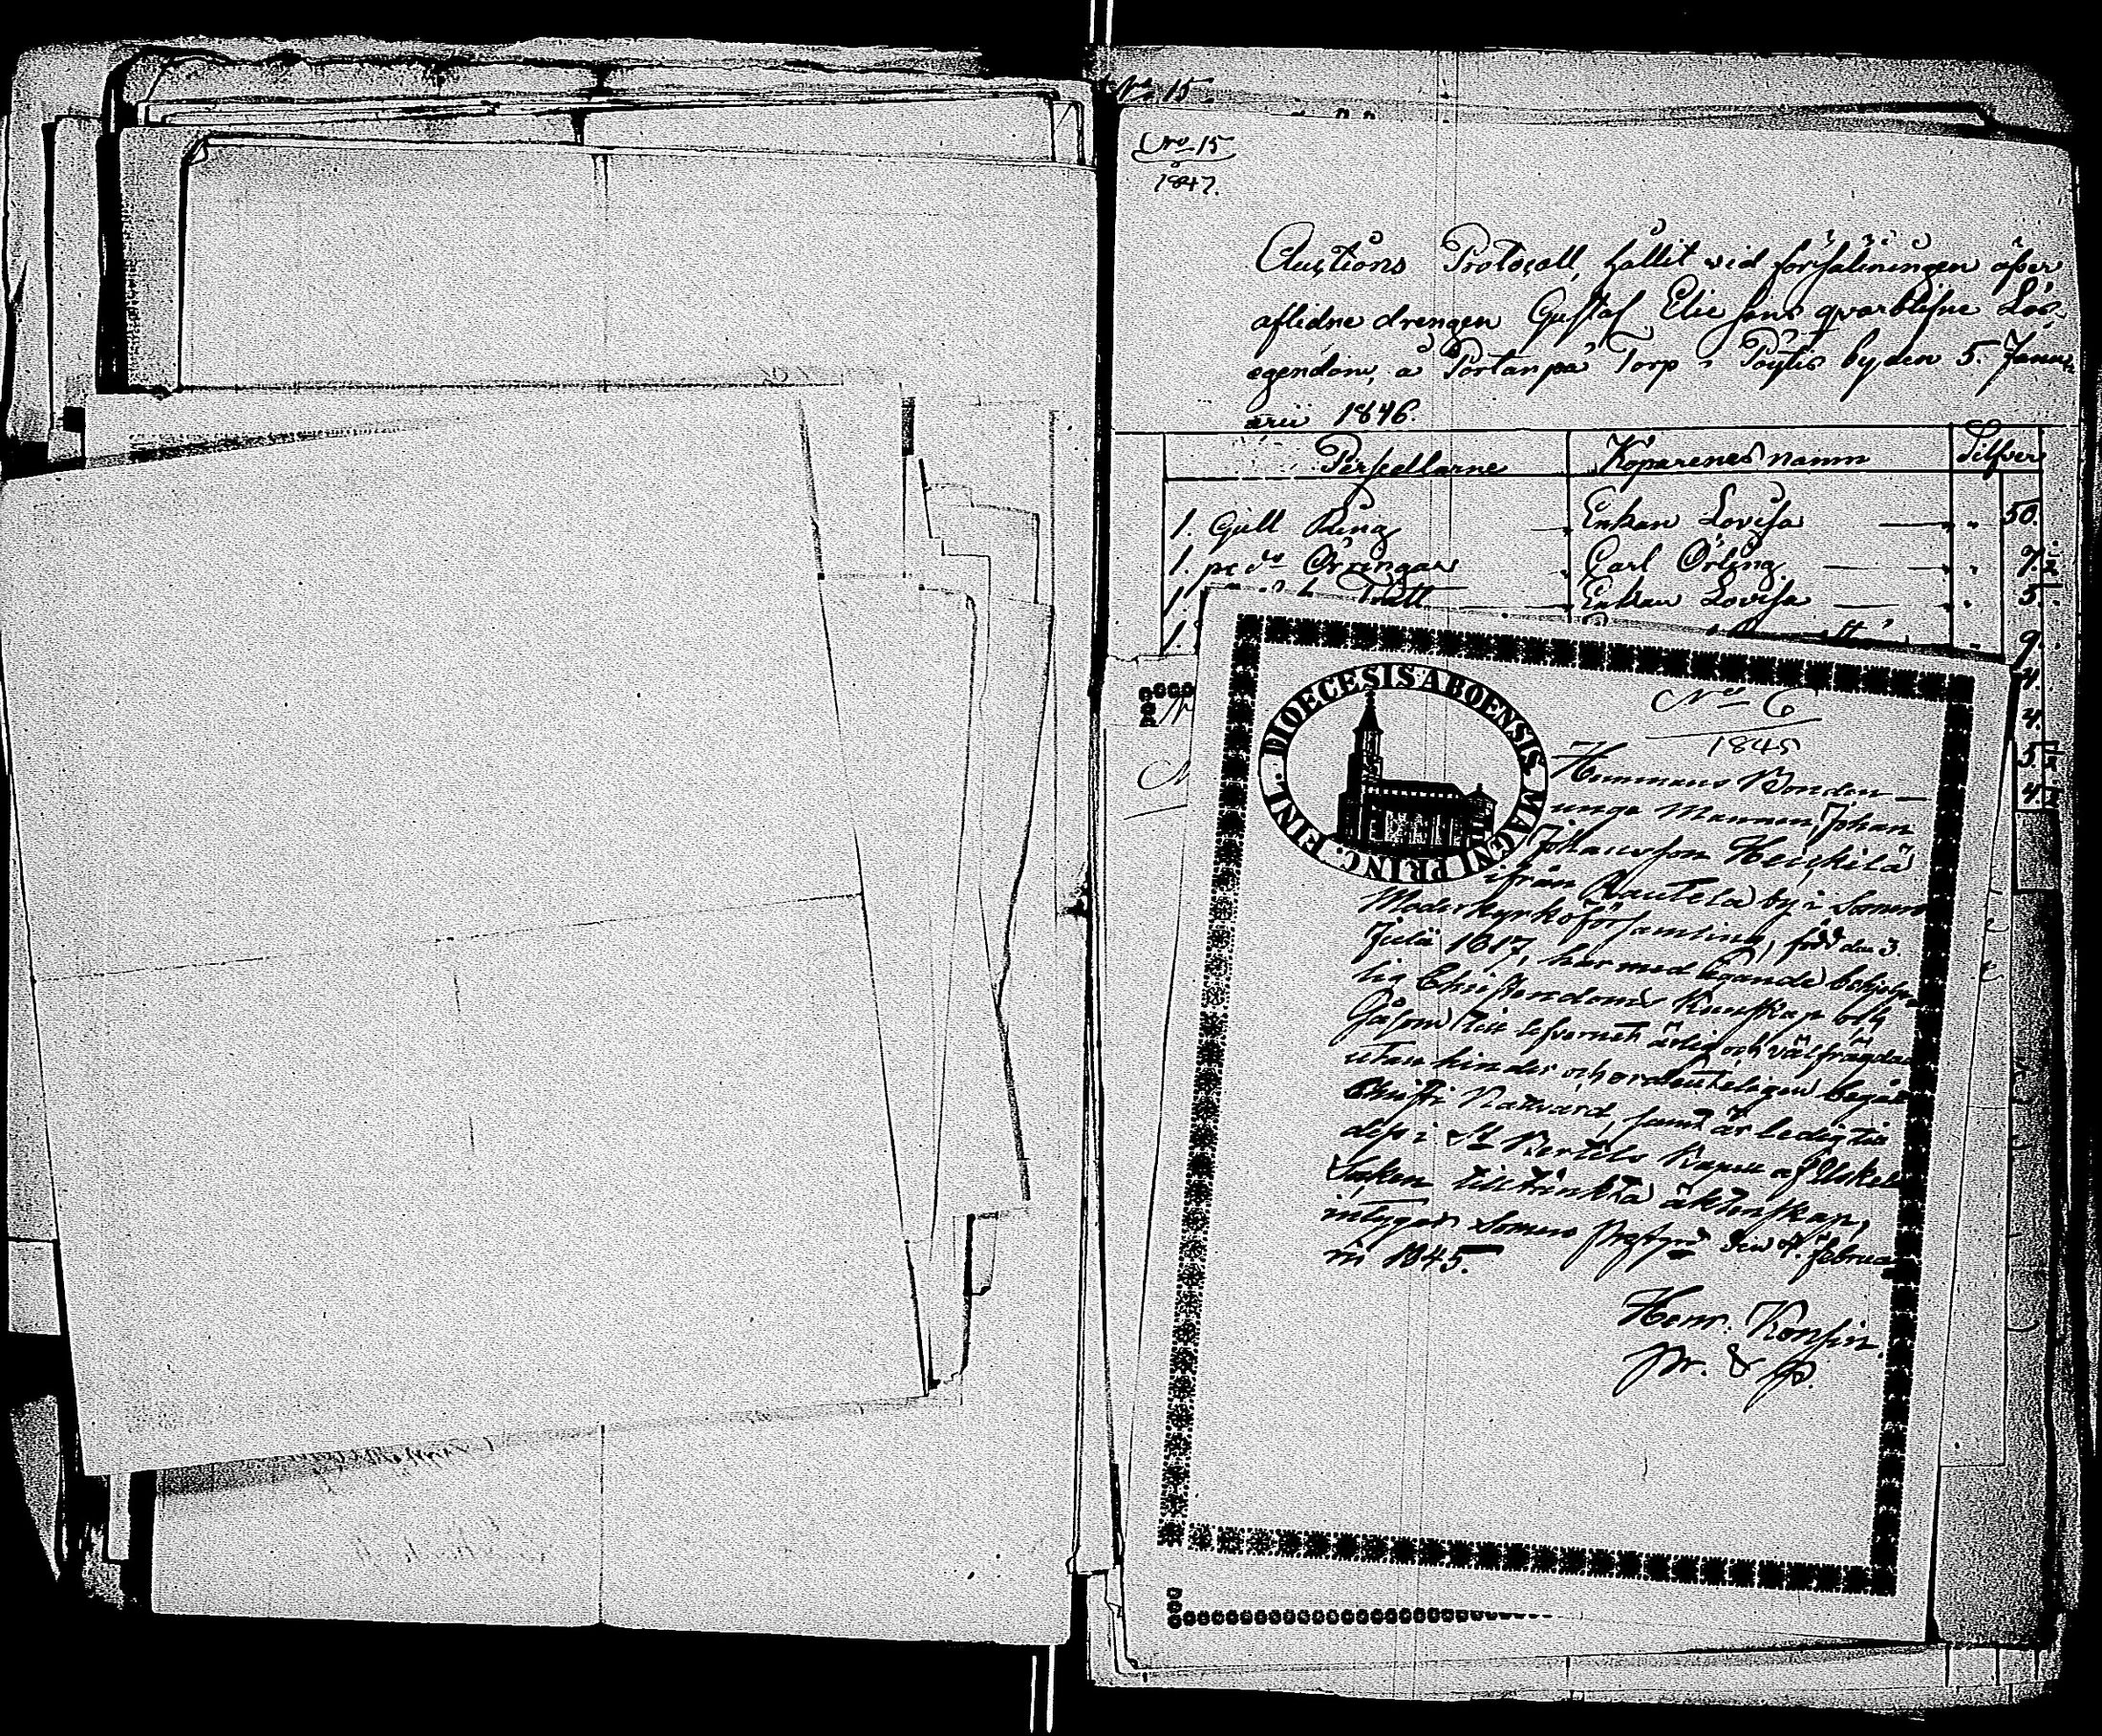 No 15
No 15
1847.
Auctions Protocoll, hållit vid försäliningen öfver
aflidne drengen Gustaf Elie sons qvarblifne Lös-
egendom, å Portanpä Torp i Pöytis by den 5. Janu-
arii 1846.
Persedlarne Köparenes namn Silfver
1. Gull Ring Enkan Lovisa 50.
1. pr do Örringar Carl Örling 7. ½
1. Enkan Lovisa 5.
1. 9
4.
4.
5. ½
4. ½
DIOECESIS ABOENSIS MAGNI PRINC. FINL.
No 6
1845
Hemmans Bonden
unge Mannen, Johan
Johansson Heickilä
ifrån Rautela by i Somero
Moderkyrkoförsamling, född den 3.
Julii 1817, har med ägande behjelp-
lig Christendoms Kunskap och
såsom till lefvernet ärlig och välfrägdad
utan hinder och ordenteligen begått
Christi Nattvard, samt är ledig till
dess i St Bertils Kapell af Uskela
Socken tilltänkta äktenskap,
intygar Somero Prestgd den 4. Februa-
rii 1845.
Henr. Konsin.
pr. &